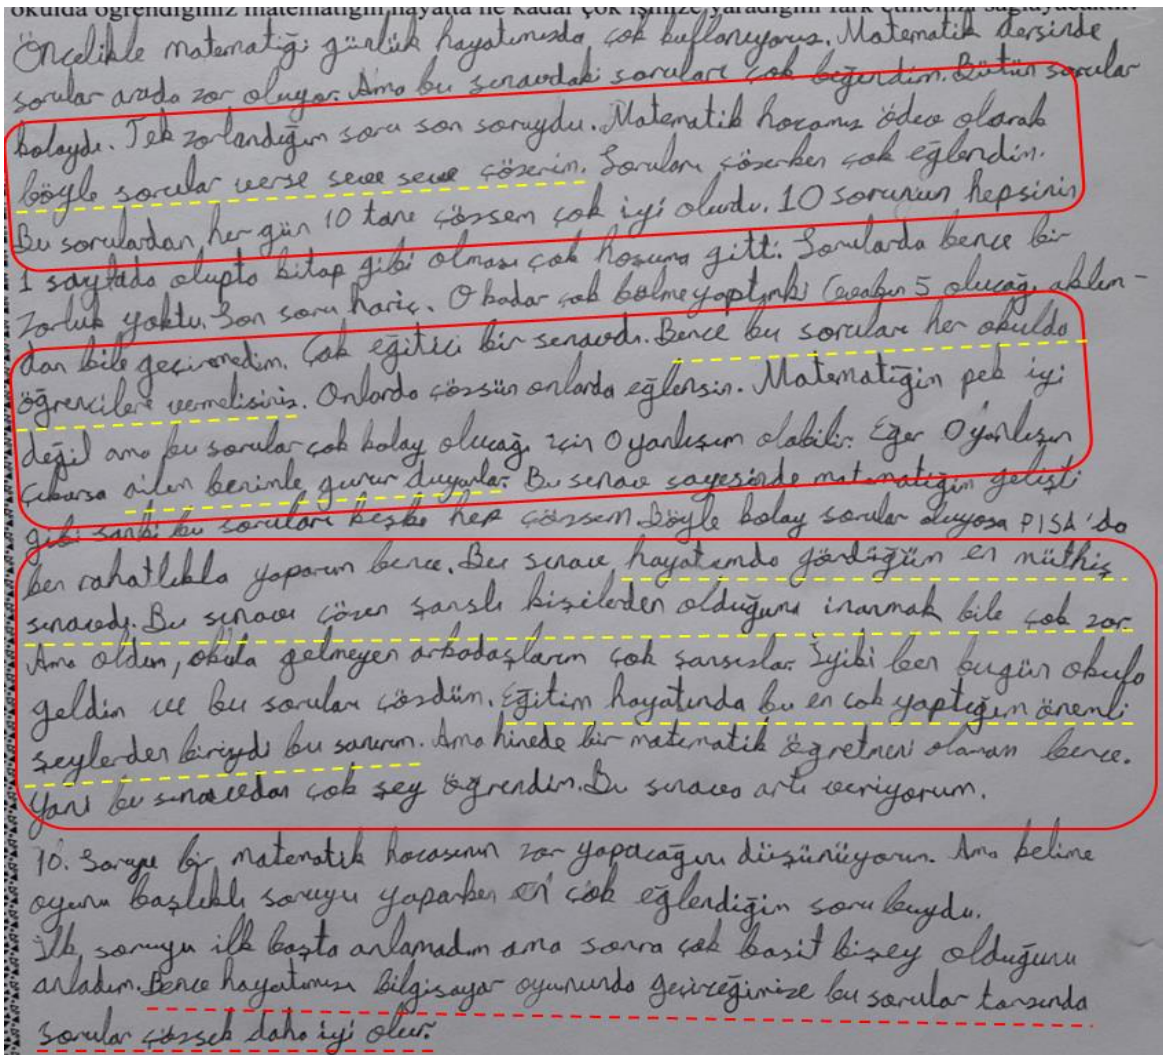 okulda öğrendiğimiz matematiğin hayatta ne kadar çok işimize yaradığını fark etmenizi sağlayacaktır.
Öncelikle matematiği günlük hayatımızda çok kullanıyoruz. Matematik dersinde
sorular arada zor oluyor. Ama bu sınavdaki soruları çok beğendim. Bütün sorular
kolaydı. Tek zorlandığım soru son soruydu. Matematik hocamız ödev olarak
böyle sorular verse seve seve çözerim. Soruları çözerken çok eğlendim.
Bu sorulardan, her gün 10 tane çözsem çok iyi olurdu. 10 sorunun hepsinin
1 sayfada olupta kitap gibi olması çok hoşuma gitti. Sorularda bence bir
zorluk yoktu. Son soru hariç. O kadar çok bölme yaptımki Cevabın 5 olucağı aklım-
dan bile geçirmedim. Çok eğitici bir sınavdı. Bence bu soruları her okulda
öğrencilere vermelisiniz. Onlarda çözsün onlarda eğlensin. Matematiğim pek iyi
değil ama bu sorular çok kolay olucağı için 0 yanlışım olabilir. Eğer 0 yanlışım
çıkarsa ailem benimle gurur duyarlar. Bu sınav sayesinde matematiğim gelişti
gibi sanki bu soruları keşke hep çözsem. Böyle kolay sorular oluyosa PISA'da
ben rahatlıkla yaparım bence. Bu sınav hayatımda gördüğüm en müthiş
sınavdı. Bu sınavı çözen şanslı kişilerden olduğuma inanmak bile çok zor
Ama oldum, okula gelmeyen arkadaşlarım çok şansızlar. İyiki ben bugün okula
geldim ve bu soruları çözdüm. Eğitim hayatımda bu en çok yaptığım önemli
şeylerden biriydi bu sanırım. Ama hinede bir matematik öğretmeni olamam bence.
Yani bu sınavdan çok şey öğrendim. Bu sınava artı veriyorum.
10. Soruyu bir matematik hocasının zor yapacağını düşünüyorum. Ama kelime
oyunu başlıklı soruyu yaparken en çok eğlendiğim soru buydu.
İlk soruyu ilk başta anlamadım ama sonra çok basit bişey olduğunu
anladım. Bence hayatımızı bilgisayar oyununda geçireceğimize bu sorular tarzında
sorular çözsek daha iyi olur.